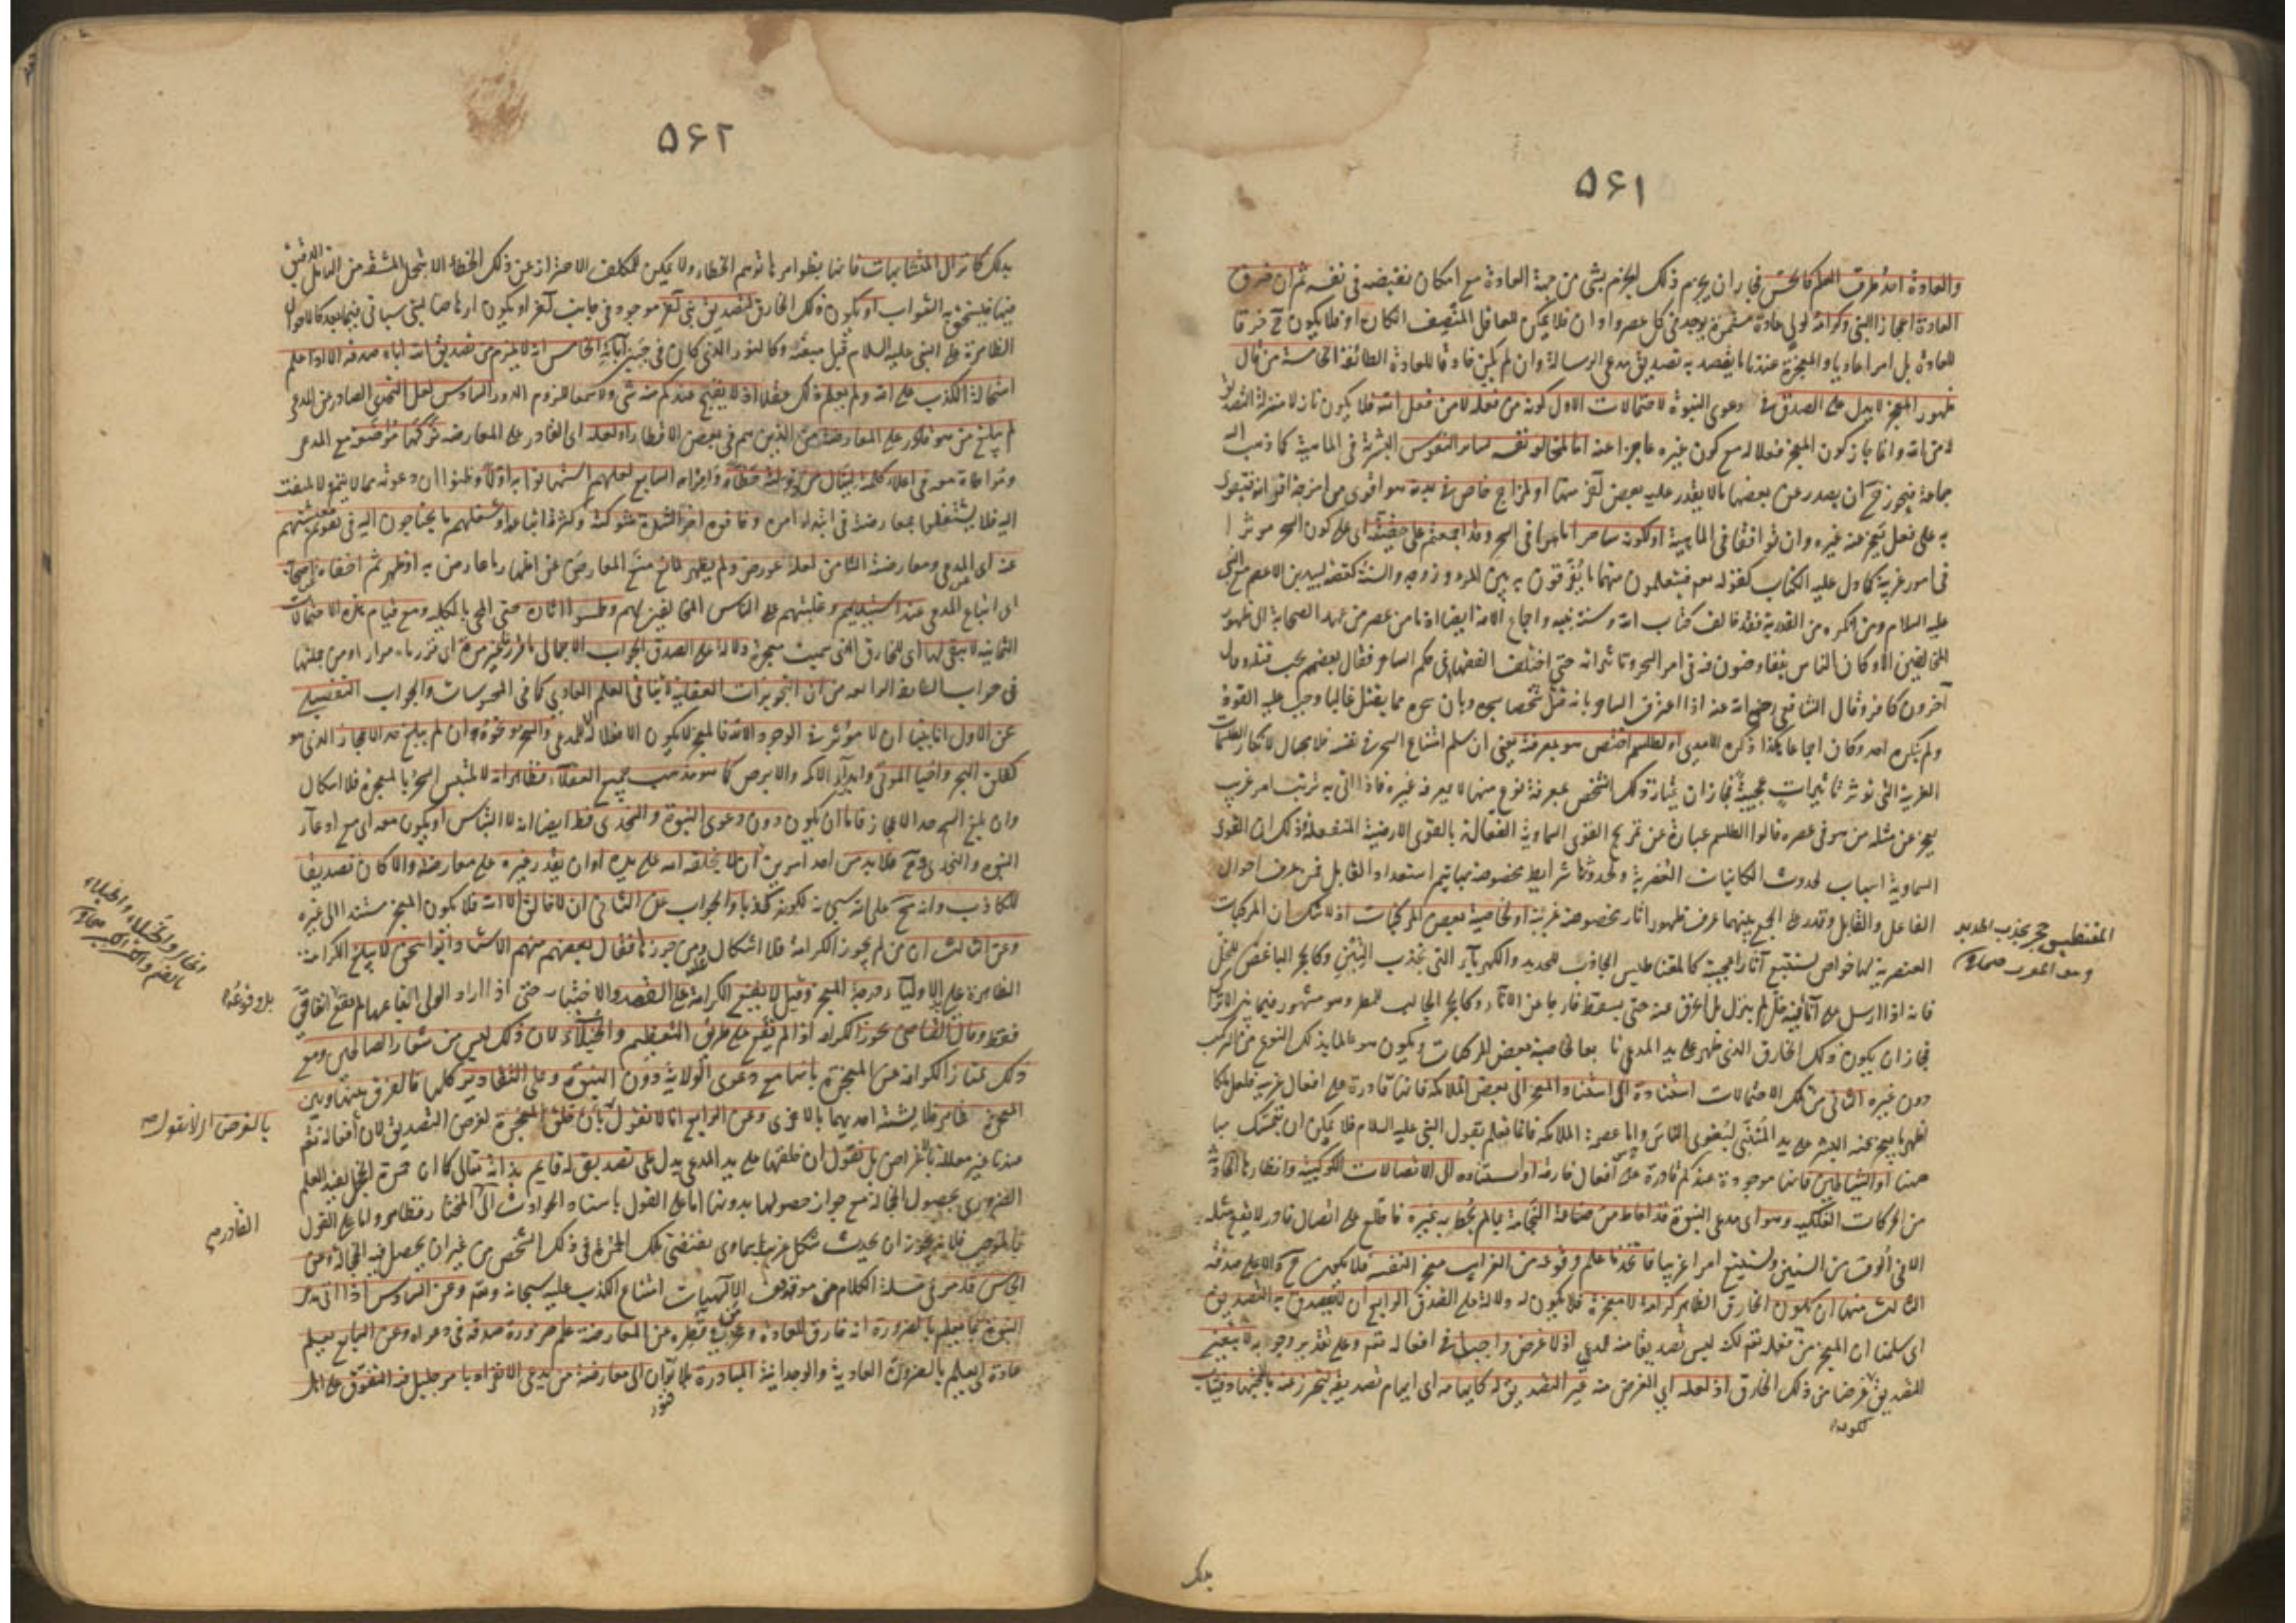 ٥٦١
والعادة احد طرق العلم كالحس فجاز ان يجزم ذلك الجزم بشئ من جهة العادة مع امكان نقيضه في نفسه ثم ان خرق
العادة اعجازا لنبي وكرامة لولي عادة مستمرة يوجد في كل عصر واوان فلا يمكن للعاقل المنصف انكاره او فلا يكون ح خرقا
للعادة بل امرا عاديا والمعجزة عندنا ما يقصد به تصديق مدعي الرسالة وان لم يكن خارقا للعادة الطائفة الخامسة من قال
ظهور المعجز لا يدل على الصدق في دعوى النبوة لاحتمالات الاول كونه من فعله لا من فعل الله فلا يكون نازلا منزلة التصديق
من الله وانما جاز كون المعجز فعلا له مع كون غيره عاجزا عنه اما لمخالفة نفسه لسائر النفوس البشرية في الماهية كما ذهب اليه
جماعة فيجوز ح ان يصدر عن بعضها ما لا يقدر عليه بعض آخر منها او لمزاج خاص في بدنه هو اقوى من امزجة اقرانه فيقوى
به على فعل يعجز عنه غيره وان توافقا في الماهية او لكونه ساحرا ماهرا في السحر وقد اجمعتم على حقيقته اى على كون السحر موثرا
في امور غريبة كما دل عليه الكتاب كقوله تعالى فيتعلمون منهما ما يفرقون به بين المرء وزوجه والسنة كقصة لبيد بن الاعصم مع النبي
عليه السلام ومن انكره من القدرية فقد خالف كتاب الله وسنة نبيه واجماع الامة ايضا اذ ما من عصر من عهد الصحابة الى ظهور
المخالفين الا وكان الناس يتفاوضون فيه في امر السحر وتاثيراته حتى اختلف الفقهاء في حكم الساحر فقال بعضهم يجب قتله وقال
آخرون كافر وقال الشافعي رضي الله عنه اذا اعترف الساحر بانه قتل شخصا بسحره وبان سحره مما يقتل غالبا وجب عليه القود
ولم ينكره احد وكان اجماعا هكذا ذكره الآمدي او لطلسم اختص هو بمعرفته يعني ان سلم امتناع السحر في نفسه فلا مجال لانكار الطلسمات
الغريبة التي توثر تاثيرات عجيبة فجاز ان يمتاز ذلك الشخص بمعرفة نوع منها لا يعرفه غيره فاذا اتى به ترتب امر غريب
يعجز عن مثله من هو في عصره قالوا الطلسم عبارة عن تمزيج القوى السماوية الفعالة بالقوى الارضية المنفعلة وذلك ان القوى
السماوية اسباب لحدوث الكائنات العنصرية ولحدوثها شرايط مخصوصة بها يتم استعداد القابل فمن عرف احوال
الفاعل والقابل وقدر على الجمع بينهما عرف ظهور آثار مخصوصة غريبة او لخاصية بعض المركبات اذ لا شك ان المركبات
العنصرية لها خواص تستتبع آثارا عجيبة كالمقناطيس الجاذب للحديد والكهرباء التي تجذب التبن وكالحجر الباغض للخل
فانه اذا ارسل على اناء فيه خل لم ينزل بل انحرف عنه حتى يسقط خارجا عن الاناء وكالحجر الجالب للمطر وهو مشهور فيما بين الاتراك
فجاز ان يكون ذلك الخارق الذي ظهر على يد المدعي تابعا لخاصية بعض المركبات ويكون هو عالما بذلك النوع من المركب
دون غيره الثاني من تلك الاحتمالات استناده اى استناد المعجز الى بعض الملائكة فانها قادرة على افعال غريبة فلعل ملكا
اظهر ما يعجز عنه البشر على يد المتنبي ليغوى الناس واما عصمة الملائكة فانما تعلم بقول النبي عليه السلام فلا يمكن ان يتمسك بها
ههنا او الشياطين فانها موجودة عندكم قادرة على افعال خارقة او استناده الى الاتصالات الكوكبية وانظارها الحادثة
من الحركات الفلكية وهو اى مدعي النبوة قد احاط من صناعة النجامة بما لم يحط به غيره فاطلع على اتصال نادر لا يقع مثله
الا في الوف من السنين ويستتبع امرا غريبا فاتخذ ما علم وقوعه من الغرايب معجز النفسه فلا يكون ح دالا على صدقه
الثالث منها ان يكون الخارق الظاهر كرامة لا معجزة فلا يكون له دلالة على الصدق الرابع ان لا يقصد به التصديق
اى سلمنا ان المعجز من فعله تعم لكنه ليس تصديقا منه للمدعي اذ لا غرض واجبا في افعاله تعم وعلى تقدير وجوبه لا يتعين
التصديق غرضا من ذلك الخارق اذ لعله اى الغرض منه غير التصديق له كايهامه اى ايهام تصديقه ليتحرز عنه بالاجتهاد فيثاب
المقنطيس حجر يجذب الحديد
وهو المعرب صحاح
بذلك
٥٦٢
بذلك كانزال المتشابهات فانها بظواهرها توهم الخطاء ولا يمكن للمكلف الاحتراز عن ذلك الخطاء الا بتحمل المشقة من التامل الدقيق
فيها فيستحق به الثواب او يكون ذلك الخارق لتصديق نبي آخر موجود في جانب آخر او يكون ارهاصا لنبي سياتي فيما بعد كالاحوال
الظاهرة على النبي عليه السلام قبل مبعثه وكالنور الذي كان في جبين آبائه الخامس انه لا يلزم من تصديق الله اياه صدقه الا اذا علم
استحالة الكذب على الله ولم يعلم ذلك عقلا اذ لا يقبح عندكم منه شئ ولا سمعا للزوم الدور السادس لعل التحدي الصادر عن المدعي
لم يبلغ من هو قادر على المعارضة من الذين هم في بعض الاقطار او لعله اى القادر على المعارضة تركها مواضعة مع المدعي
ومراعاة معه في اعلاء كلمته لينال من دولته حظا وافرا السابع لعلهم استهانوا به اولا وظنوا ان دعوته مما لا يتم ولا يلتفت
اليه فلا يشتغلوا بمعارضته في ابتداء امره وخافوه آخرا لشدة شوكته وكثرة اتباعه او شغلهم ما يحتاجون اليه في تقويم معيشتهم
عنه اى المدعي ومعارضته الثامن لعله عورض ولم يظهر لمانع منع المعارض عن اظهار ما عارض به او ظهر ثم اخفاه اصحابه
اى اتباع المدعي عند استيلائهم وغلبتهم على الناس المخالفين لهم وطمسوا آثاره حتى انمحى بالكلية ومع قيام هذه الاحتمالات
الثمانية لا يبقى لها اى للخارق التي سميت معجزة دلالة على الصدق الجواب الاجمالي ما قررناه غير مرة اى قررناه مرارا ومن جملتها
في جواب الطائفة الرابعة من ان التجويزات العقلية لا تنافي العلم العادي كما في المحسوسات والجواب التفصيلي
عن الاول انا بينا ان لا موثر في الوجود الا الله فالمعجز لا يكون الا فعلا له لا للمدعي والسحر ونحوه ان لم يبلغ حد الاعجاز الذي هو
كفلق البحر واحياء الموتى وابراء الاكمه والابرص كما هو مذهب جميع العقلاء فظاهر انه لا يلتبس السحر بالمعجزة فلا اشكال
وان بلغ السحر حد الاعجاز فاما ان يكون دون دعوى النبوة والتحدي فظ ايضا انه لا التباس او يكون معه اى مع ادعاء
النبوة والتحدي وح فلا بد من احد امرين ان لا يخلقه الله على يده او ان يقدر غيره على معارضته والا كان تصديقا
للكاذب وانه مح على الله سبحانه لكونه كذبا والجواب عن الثاني ان لا خالق الا الله فلا يكون المعجز مستندا الى غيره
وعن الثالث ان من لم يجوز الكرامة فلا اشكال ومن جوزها فقال بعضهم منهم الاستاد ابو اسحق لا يبلغ الكرامة
الظاهرة على الاولياء درجة المعجز وقيل لا يقع الكرامة على القصد والاختيار حتى اذا اراد الولي ايقاعها لم يقع اتفاقي
فقط وقال القاضي يجوز الكرامة اذا لم يقع على طريق التعظيم والخيلاء لان ذلك ليس من شعار الصالحين ومع
ذلك تمتاز الكرامة عن المعجزة بانها مع دعوى الولاية دون النبوة وعلى التقادير كلها فالفرق بينها وبين
المعجزة ظاهر فلا يشتبه احديهما بالاخرى وعن الرابع انا لا نقول بان خلق المعجزة لغرض التصديق لان افعاله تعم
عندنا غير معللة بالاغراض بل نقول ان خلقها على يد المدعي يدل على تصديق له قايم بذاته تعالى كما ان حمرة الخجل يفيد العلم
الضروري بحصول الخجالة مع جواز حصولها بدونها اما على القول باستناد الحوادث الى المختار فظاهر واما على القول
بالموجب فلانه يجوز ان يحدث شكل غريب سماوي يقتضي تلك الحمرة في ذلك الشخص من غير ان يحصل فيه الخجالة وعن
الخامس قد مر في مسئلة الكلام من موقف الالهيات امتناع الكذب عليه سبحانه وتعم وعن السادس اذا اتى مدعي
النبوة بما يعلم بالضرورة انه خارق للعادة وعجز من في قطره عن المعارضة علم ضرورة صدقه في دعواه وعن السابع يعلم
عادة اى يعلم بالضرورة العادية والوجدانية المبادرة بلا توان الى معارضة من يدعي الانفراد بامر جليل فيه التفوق على اهل
بل وقوعه
بالغرض اى لا نقول
القادر